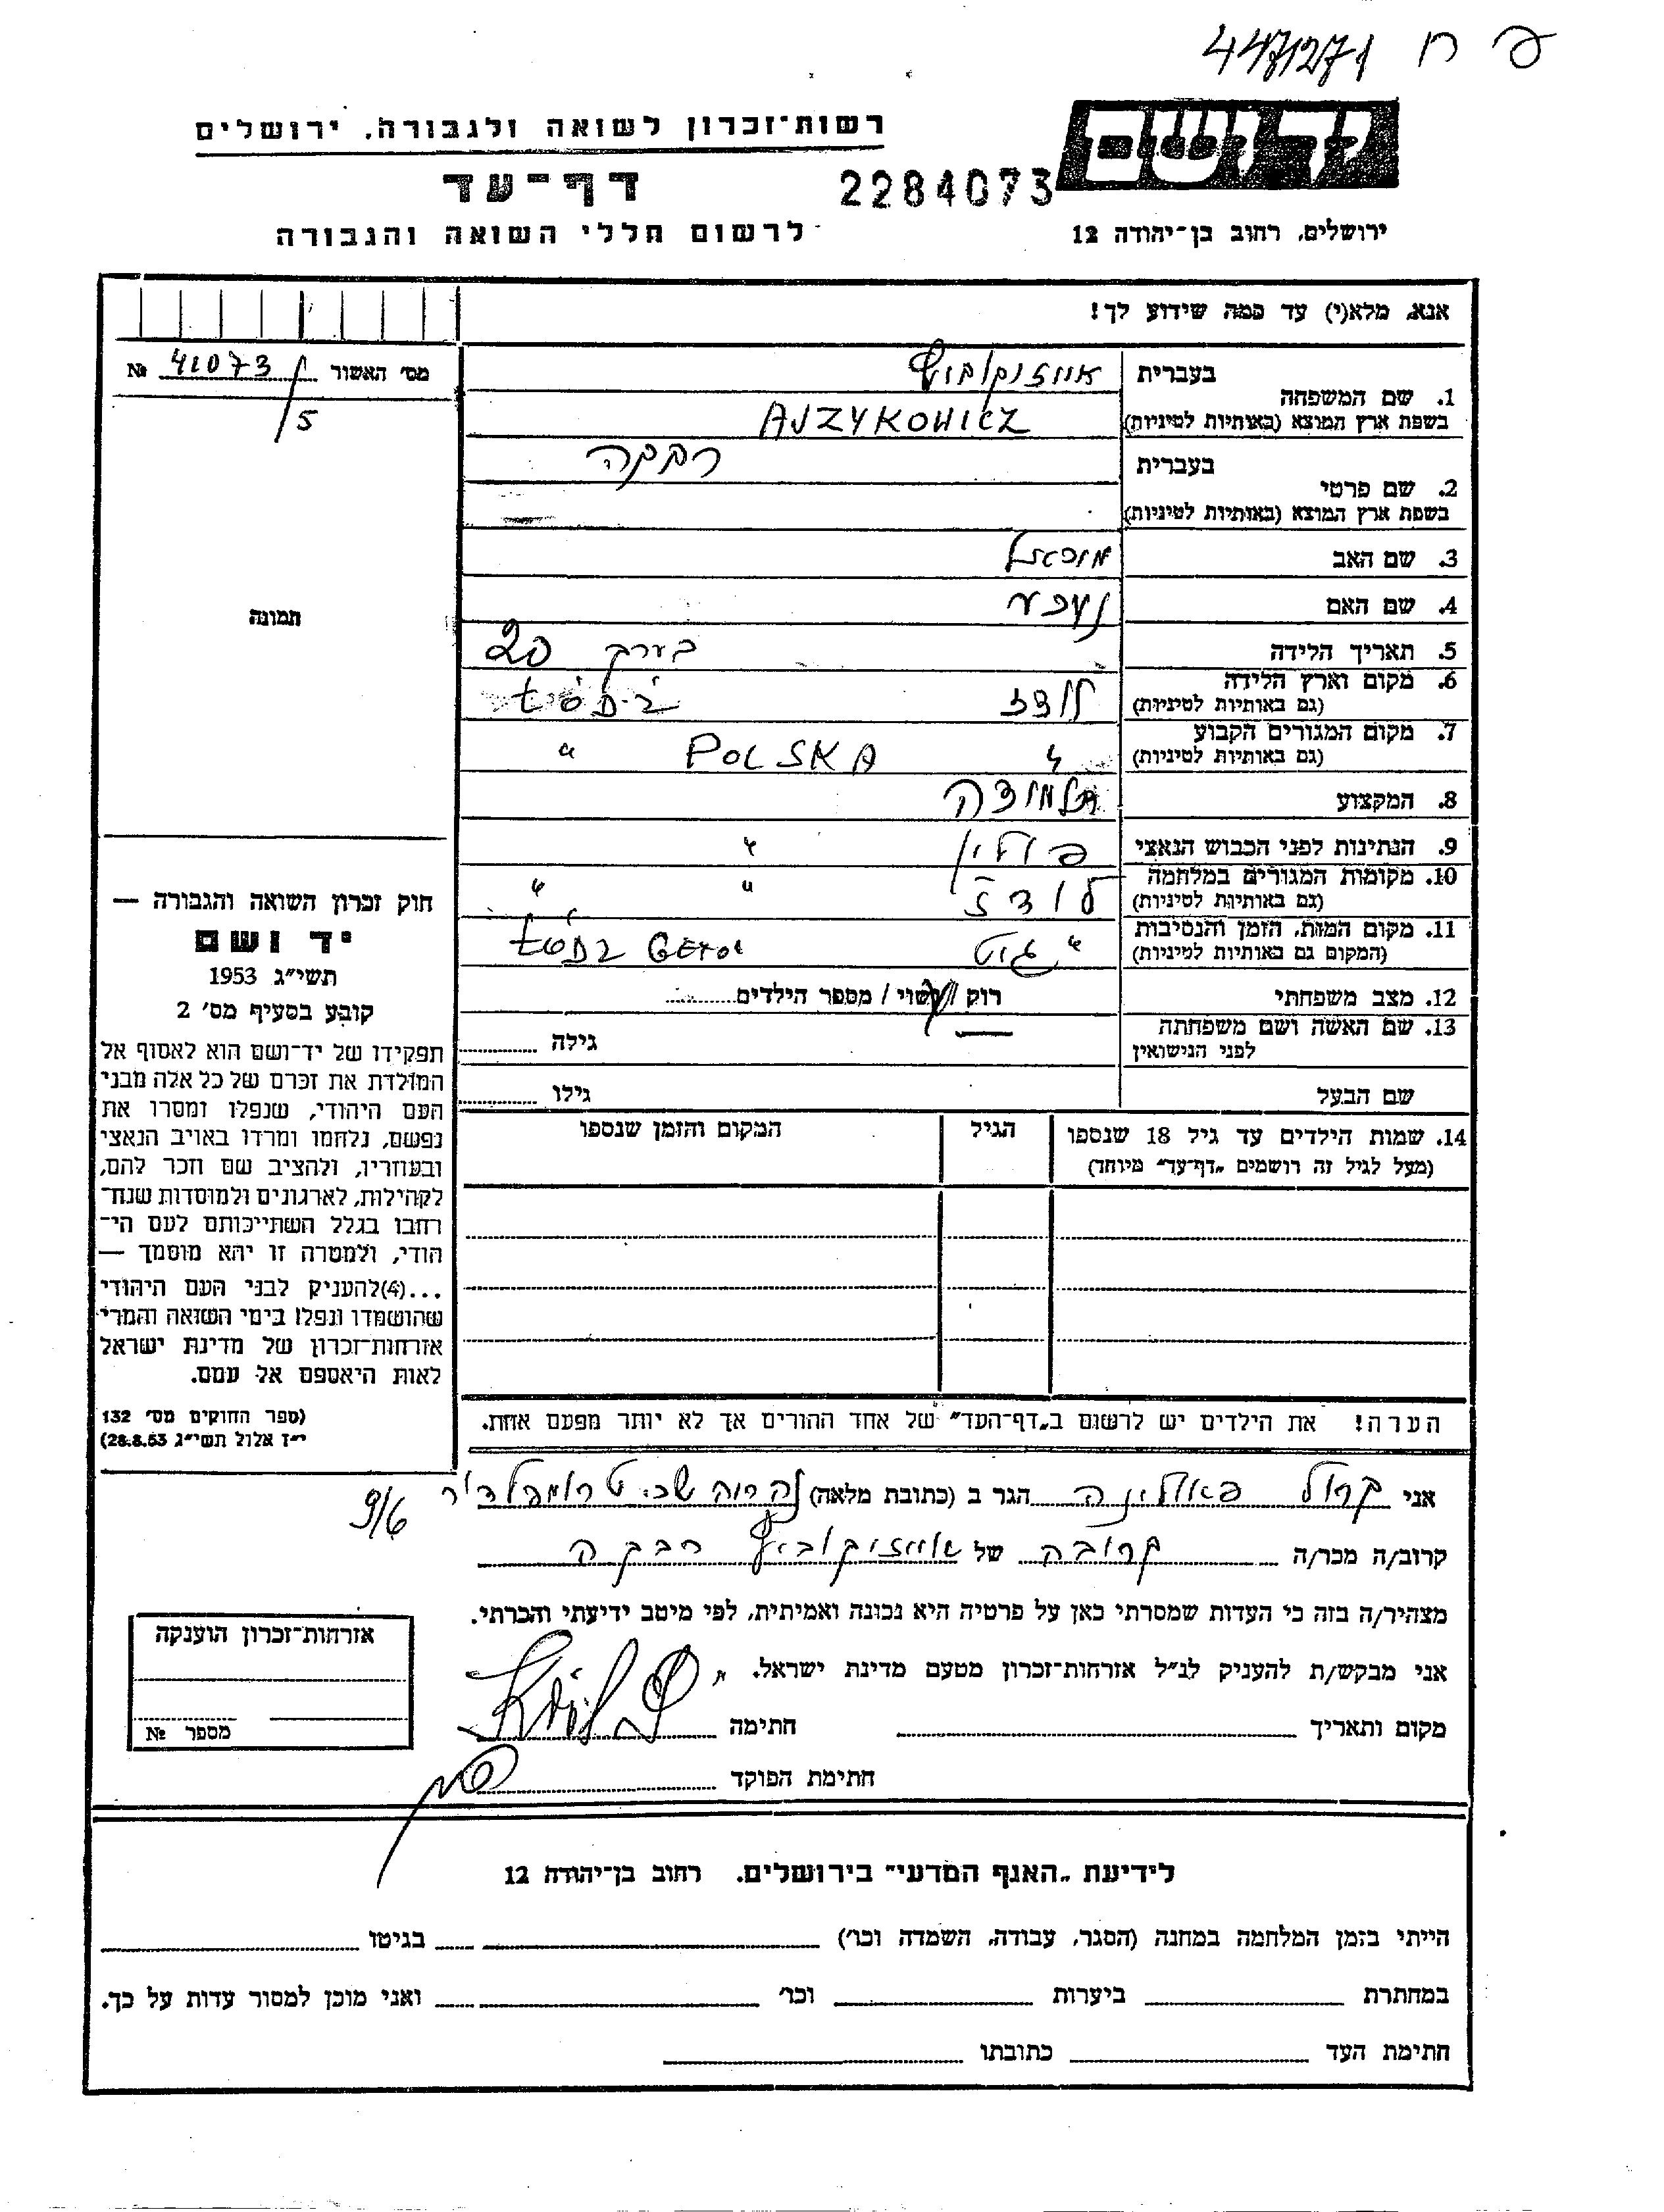 447127/1 ח פ
יד ושם
רשות־זכרון לשואה ולגבורה, ירושלים
דף־עד
2284073
לרשום חללי השואה והגבורה
ירושלים, רחוב בן־יהודה 12
אנא, מלא(י) עד כמה שידוע לך!
מס׳ האשור 41073 №
5
תמונה
1. שם המשפחה
בעברית אייזיקוביץ
בשפת ארץ המוצא (באותיות לטיניות) AJZYKOWICZ
2. שם פרטי
בעברית רבקה
בשפת ארץ המוצא (באותיות לטיניות)
3. שם האב מיכאל
4. שם האם
5. תאריך הלידה בערך 20
6. מקום וארץ הלידה לודז
(גם באותיות לטיניות)
7. מקום המגורים הקבוע " POLSKA "
(גם באותיות לטיניות)
8. המקצוע תלמידה
9. הנתינות לפני הכבוש הנאצי פולין "
10. מקומות המגורים במלחמה לודז " "
(גם באותיות לטיניות)
11. מקום המות, הזמן והנסיבות " גיטו
(המקום גם באותיות לטיניות)
12. מצב משפחתי רוק / נשוי / מספר הילדים
13. שם האשה ושם משפחתה
לפני הנישואין
גילה
שם הבעל
גילו
14. שמות הילדים עד גיל 18 שנספו
(מעל לגיל זה רושמים „דף־עד” מיוחד)
הגיל
המקום והזמן שנספו
הערה! את הילדים יש לרשום ב„דף־העד” של אחד ההורים אך לא יותר מפעם אחת.
חוק זכרון השואה והגבורה —
יד ושם
תשי״ג 1953
קובע בסעיף מס׳ 2
תפקידו של יד־ושם הוא לאסוף אל
המולדת את זכרם של כל אלה מבני
העם היהודי, שנפלו ומסרו את
נפשם, נלחמו ומרדו באויב הנאצי
ובעוזריו, ולהציב שם וזכר להם,
לקהילות, לארגונים ולמוסדות שנח־
רחבו בגלל השתייכותם לעם הי־
הודי, ולמטרה זו יהא מוסמך —
...(4)להעניק לבני העם היהודי
שהושמדו ונפלו בימי השואה והמרי
אזרחות־זכרון של מדינת ישראל
לאות היאספם אל עמם.
(ספר החוקים מס׳ 132
י״ז אלול תשי״ג 28.8.53)
אני קרול פאולינה הגר ב (כתובת מלאה) נהריה שכ. טרומפלדור
9/6
קרוב/ה מכר/ה קרובה של אייזיקוביץ רבקה
מצהיר/ה בזה כי העדות שמסרתי כאן על פרטיה היא נכונה ואמיתית, לפי מיטב ידיעתי והכרתי.
אני מבקש/ת להעניק לנ״ל אזרחות־זכרון מטעם מדינת ישראל.
מקום ותאריך
חתימה
חתימת הפוקד
אזרחות־זכרון הוענקה
מספר №
לידיעת „האגף המדעי” בירושלים, רחוב בן־יהודה 12
הייתי בזמן המלחמה במחנה (הסגר, עבודה, השמדה וכו׳) בגיטו
במחתרת ביערות וכו׳ ואני מוכן למסור עדות על כך.
חתימת העד כתובתו